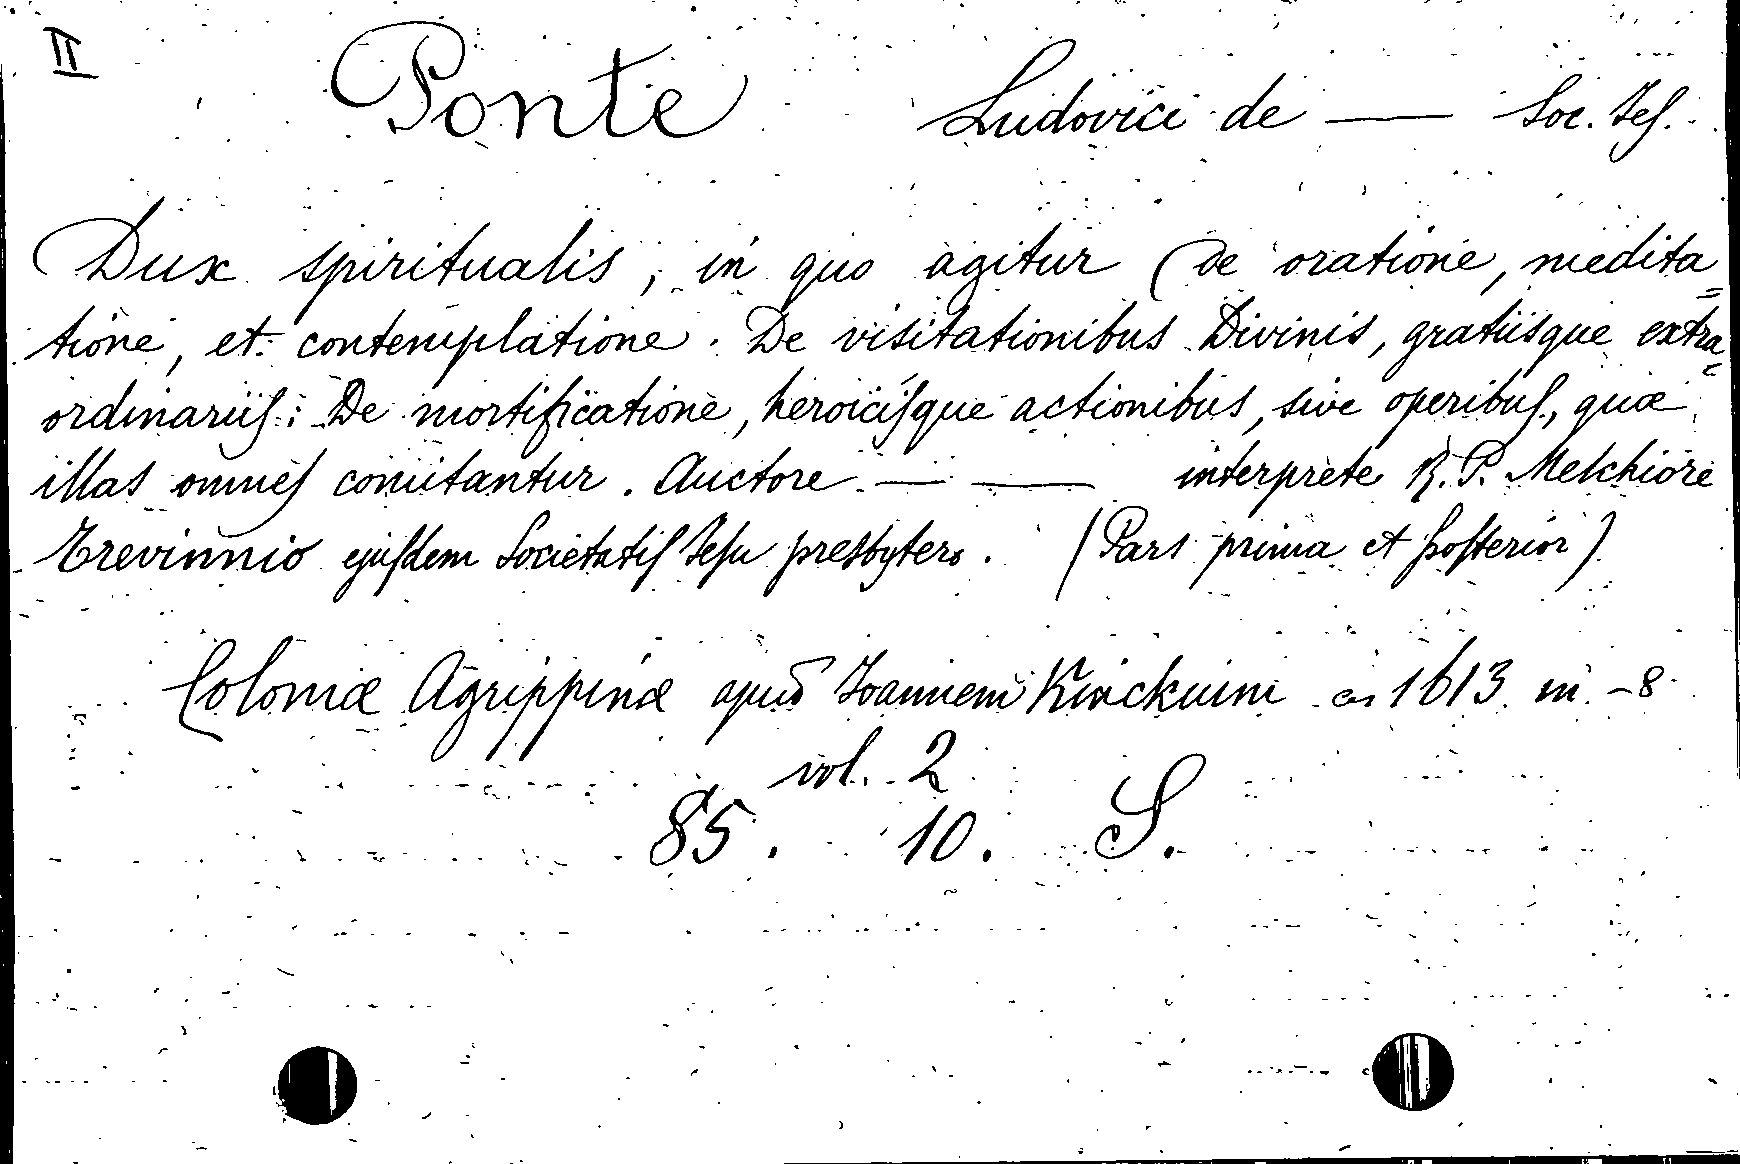 II
Ponte Ludovici de — Soc. Jes.
Dux spiritualis, in quo agitur (De oratione, medita=
tione, et contemplatione. De visitationibus Divinis, gratiisque extra=
ordinariis: De mortificatione, heroicisque actionibus, sive operibus, quæ
illas omnes comitantur. Auctore — — interprete R. P. Melchiore
Trevinnio ejusdem Societatis Jesu presbytero. (Pars prima et posterior)
Coloniæ Agrippinæ apud Joannem Kinckium 1613 in -8
vol. 2
85. 10. S.